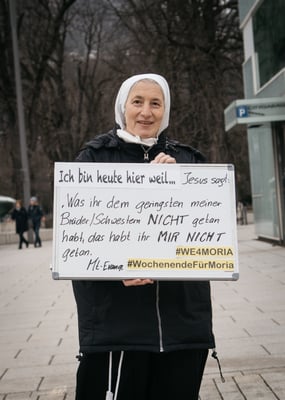 Ich bin heute hier weil... Jesus sagt:
"Was ihr dem geringsten meiner
Brüder/Schwestern NICHT getan
habt, das habt ihr MIR NICHT
getan. #WE4MORIA
Mt.-Evang. #WochenendeFürMoria
P